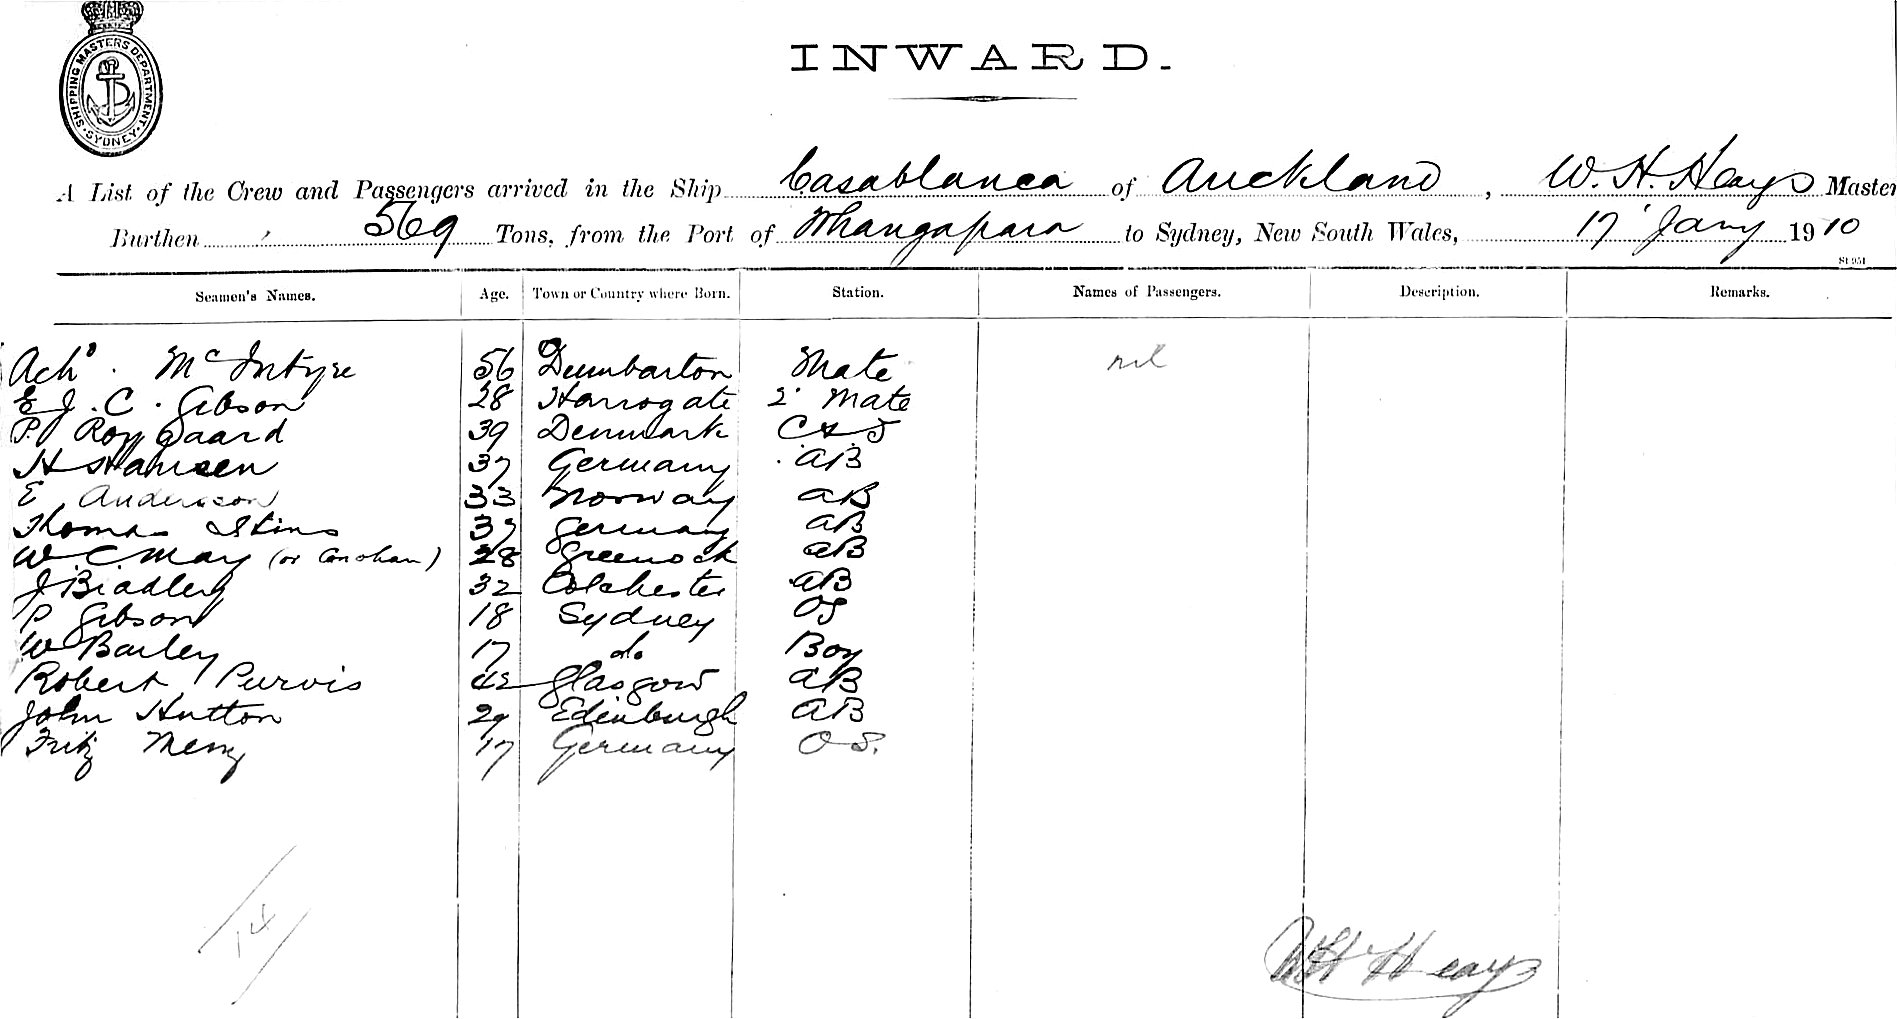 SHIPPING MASTERS DEPARTMENT · SYDNEY ·
INWARD.
A List of the Crew and Passengers arrived in the Ship Casablanca of Auckland, W. H. Heays Master
Burthen 569 Tons, from the Port of Whangapara to Sydney, New South Wales, 17 Jany 1910
Seamen's Names. Age. Town or Country where Born. Station. Names of Passengers. Description. Remarks.
Achd. McIntyre 56 Dumbarton Mate nil
E J. C. Gibson 28 Harrogate 2 Mate
P. 39 Denmark C & S
H Hansen 37 Germany AB
E Anderson 33 Norway AB
Thomas 37 Germany AB
W. C. May (or ) 28 Greenock AB
J Bradley 32 Colchester AB
P Gibson 18 Sydney OS
W Barley 17 do Boy
Robert Purvis 42 Glasgow AB
John Hutton 29 Edinburgh AB
Fritz 17 Germany O S.
14
W H Heays